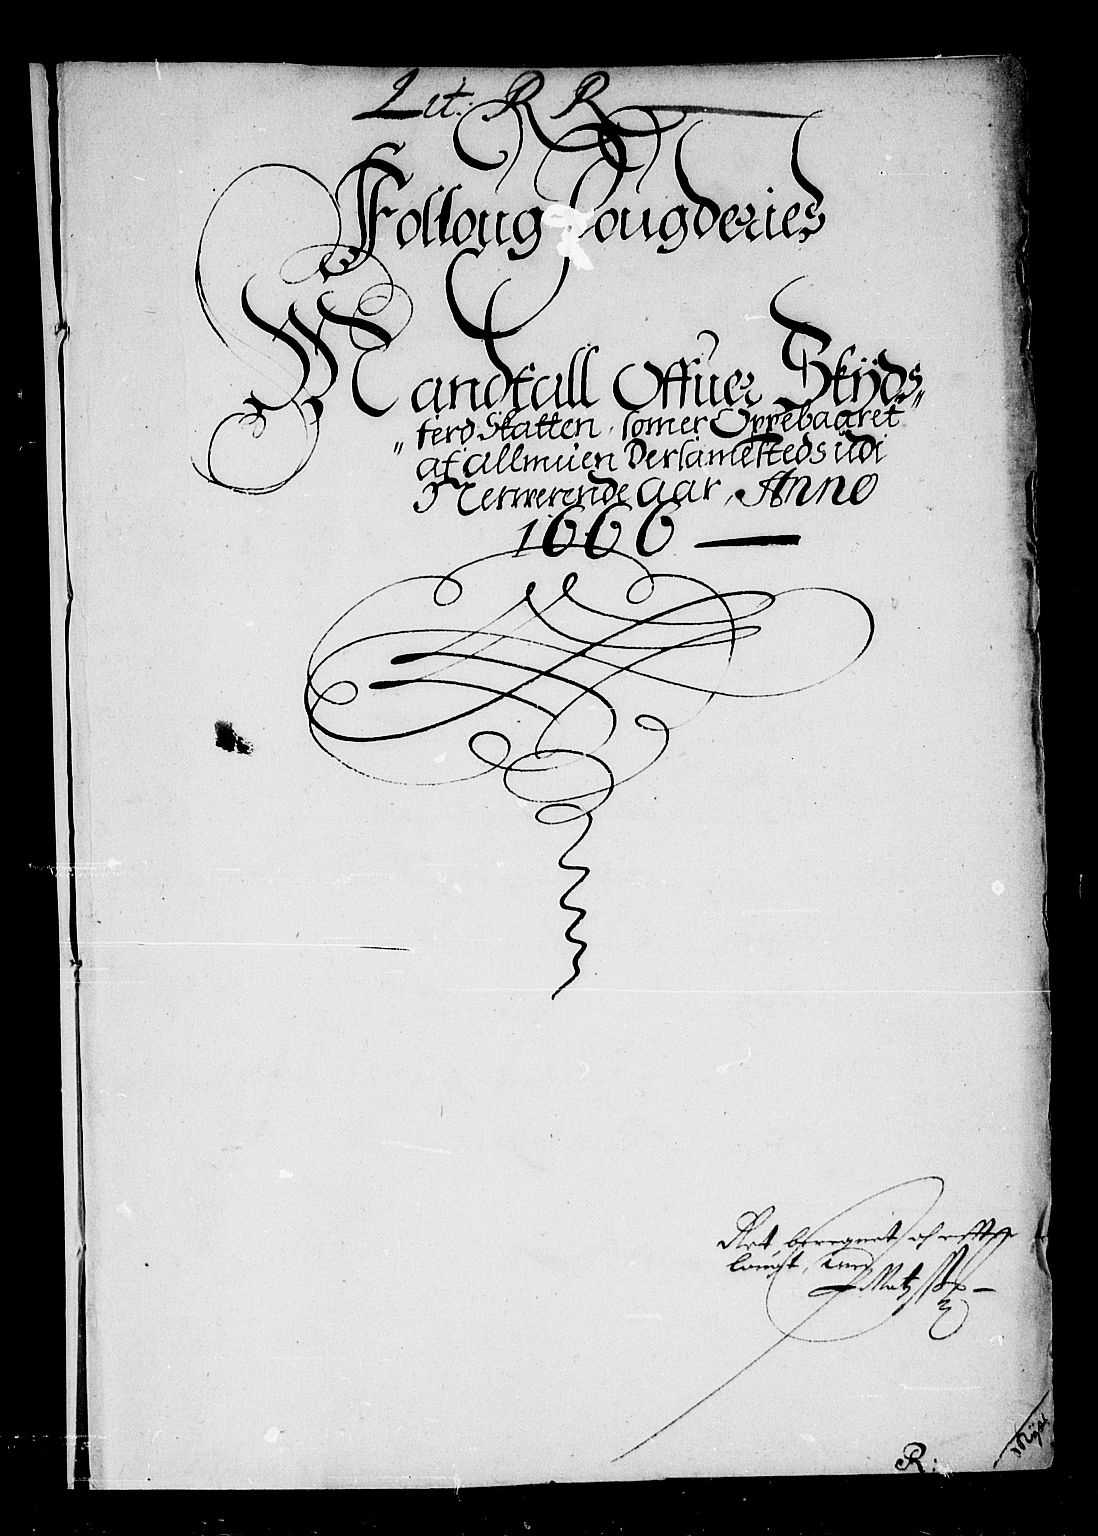 Lit: RR
Folloug fougderies
Mandtall Offuer Skÿds„
„ferd Skatten, somer Oppebaaret
af allmuen Dersamesteds udi
Nerwerende aar, Anno
1666 —
Ret beregnit och
langt,
R: